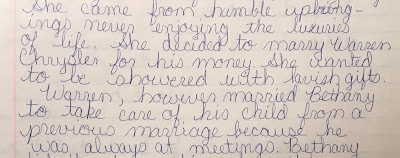 She came from humble upbring-
ings never enjoying the luxuries
of life. She decided to marry Warren
Chrysler for his money. She wanted
to be showered with lavish gifts.
Warren, however married Bethany
to take care of his child from a
previous marriage because he
was always at meetings. Bethany